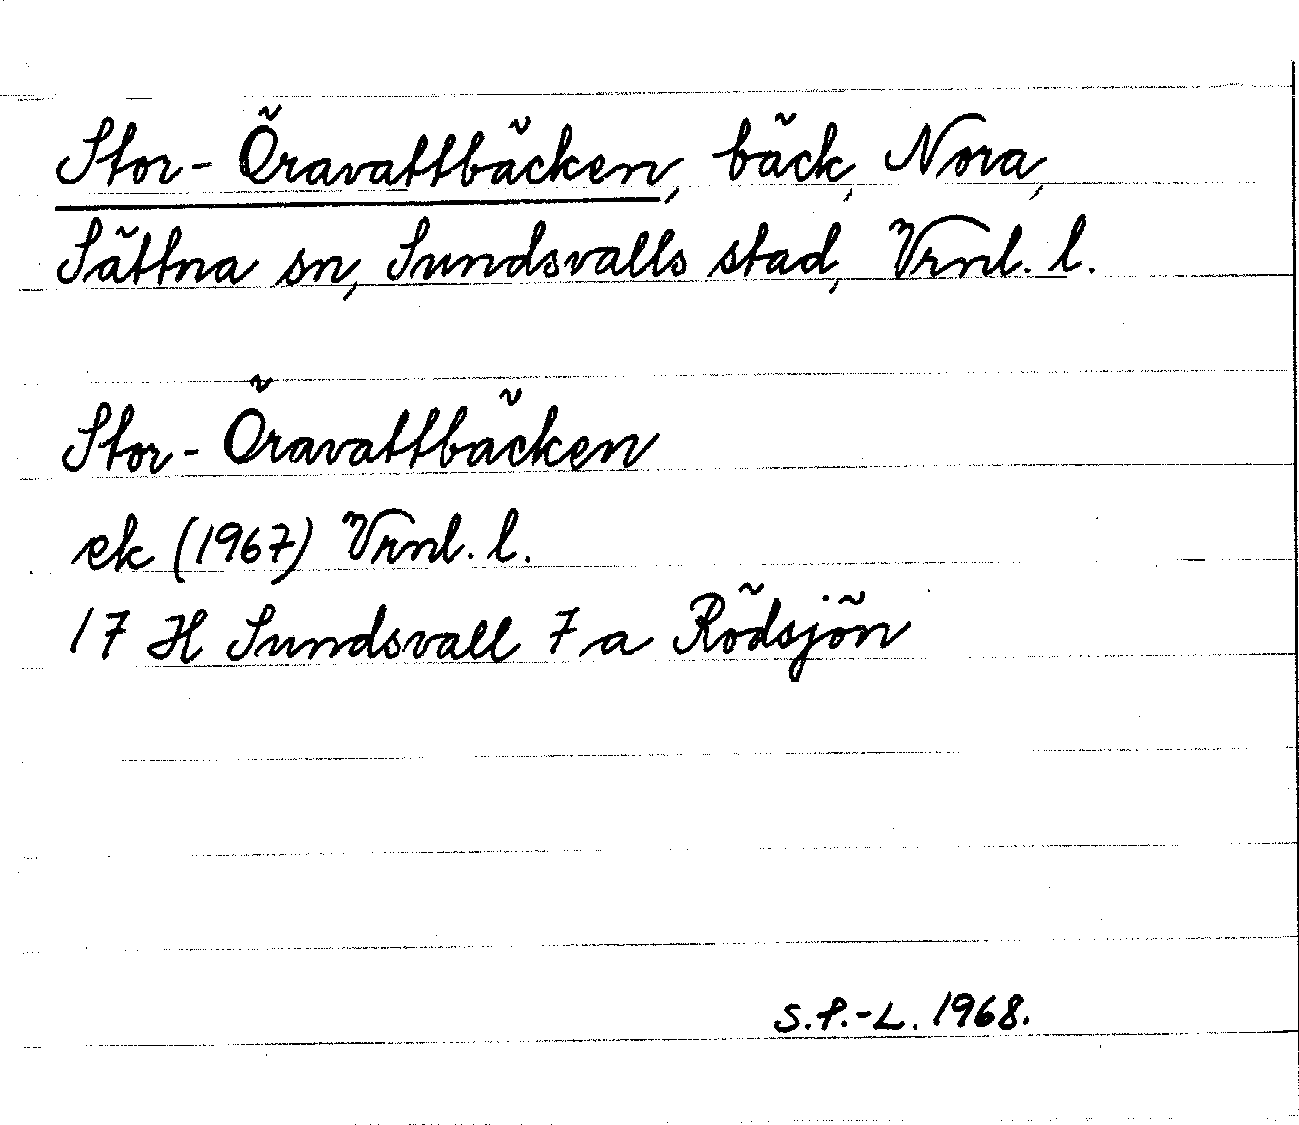 Stor-Öravattbäcken, bäck, Nora,
Sättna sn, Sundsvalls stad, Vrnl. l.
Stor-Öravattbäcken
ek (1967) Vrnl. l.
17 H Sundsvall 7 a Rödsjön
S.P.-L. 1968.